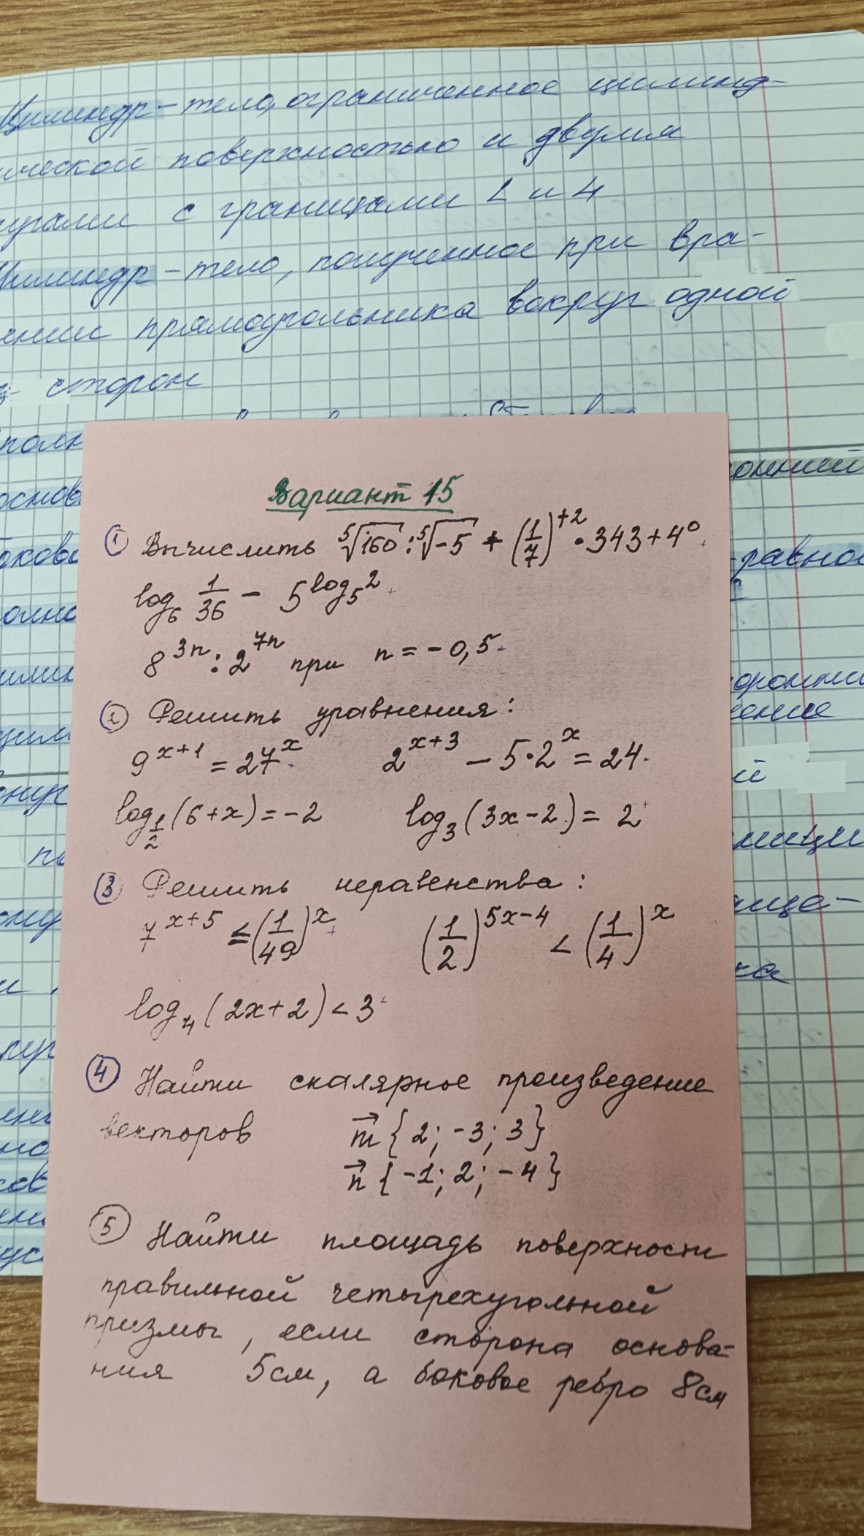 Цилиндр – тело, ограниченное цилинд-
ической поверхностью и двумя
угами с границами L и L
Цилиндр – тело, полученное при вра-
ении прямоугольника вокруг одной
сторон
Вариант 15
① Вычислить ⁵√160 : ⁵√-5 + (1/7)⁺² · 343 + 4⁰
log₆ 1/36 – 5^(log₅2)
8³ⁿ : 2⁷ⁿ при n = – 0,5
② Решить уравнения:
9^(x+1) = 27^x 2^(x+3) – 5·2^x = 24
log_(1/2) (6+x) = –2 log₃ (3x–2) = 2
③ Решить неравенства:
7^(x+5) ≤ (1/49)^x (1/2)^(5x–4) < (1/4)^x
log₄ (2x+2) < 3
④ Найти скалярное произведение
векторов m⃗ {2; –3; 3}
n⃗ {–1; 2; –4}
⑤ Найти площадь поверхности
правильной четырехугольной
призмы, если сторона основа-
ния 5см, а боковое ребро 8см